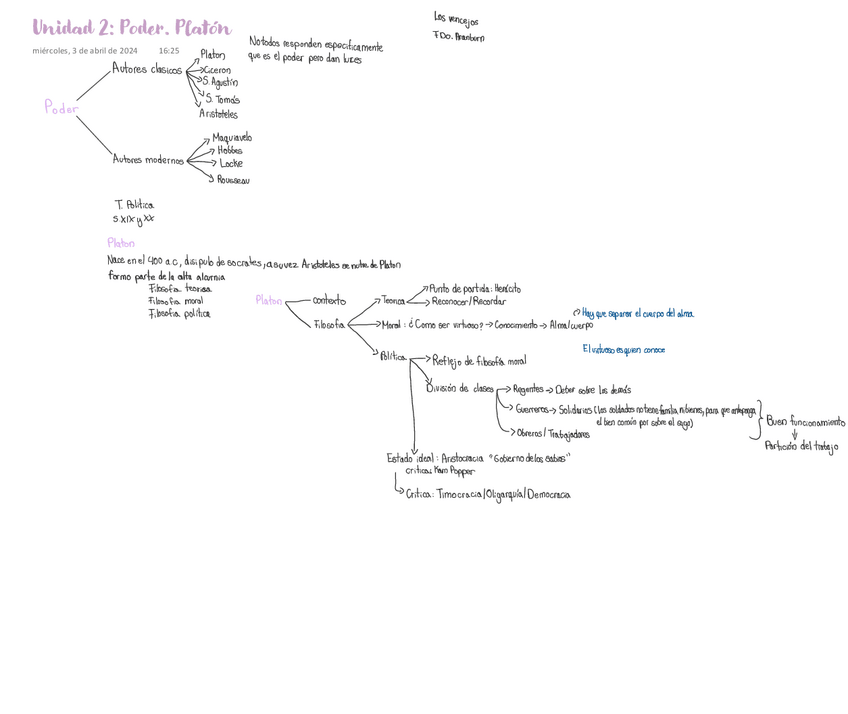 Unidad 2: Poder. Platón
miércoles, 3 de abril de 2024 16:25
Los vencejos
F Do.
No todos responden especificamente
que es el poder pero dan luces
Poder
Autores clasicos
Platon
Ciceron
S. Agustín
S. Tomás
Aristoteles
Autores modernos
Maquiavelo
Hobbes
Locke
Rousseau
T. Política
S. XIX y XX
Platon
Nace en el 400 a.c, disipulo de socrates, a su vez Aristoteles se nutre de Platon
formo parte de la alta alcurnia
Filosofia teorica
Filosofia moral
Filosofia política
Platon
contexto
Filosofia
Teorica
Punto de partida: Heráclito
Reconocer/Recordar
Moral: ¿Como ser virtuoso? → Conocimiento → Alma/cuerpo
Hay que separar el cuerpo del alma
El virtuoso es quien conoce
Política
Reflejo de filosofía moral
División de clases
Regentes → Deber sobre los demás
Guerreros → Solidarios (los soldados no tiene familia, ni bienes, para que antepoga
el bien común por sobre el suyo)
Obreros/Trabajadores
Buen funcionamiento
Partición del trabajo
Estado ideal: Aristocracia "Gobierno de los sabios"
critica: Karo Popper
Critica: Timocracia/Oligarquía/Democracia